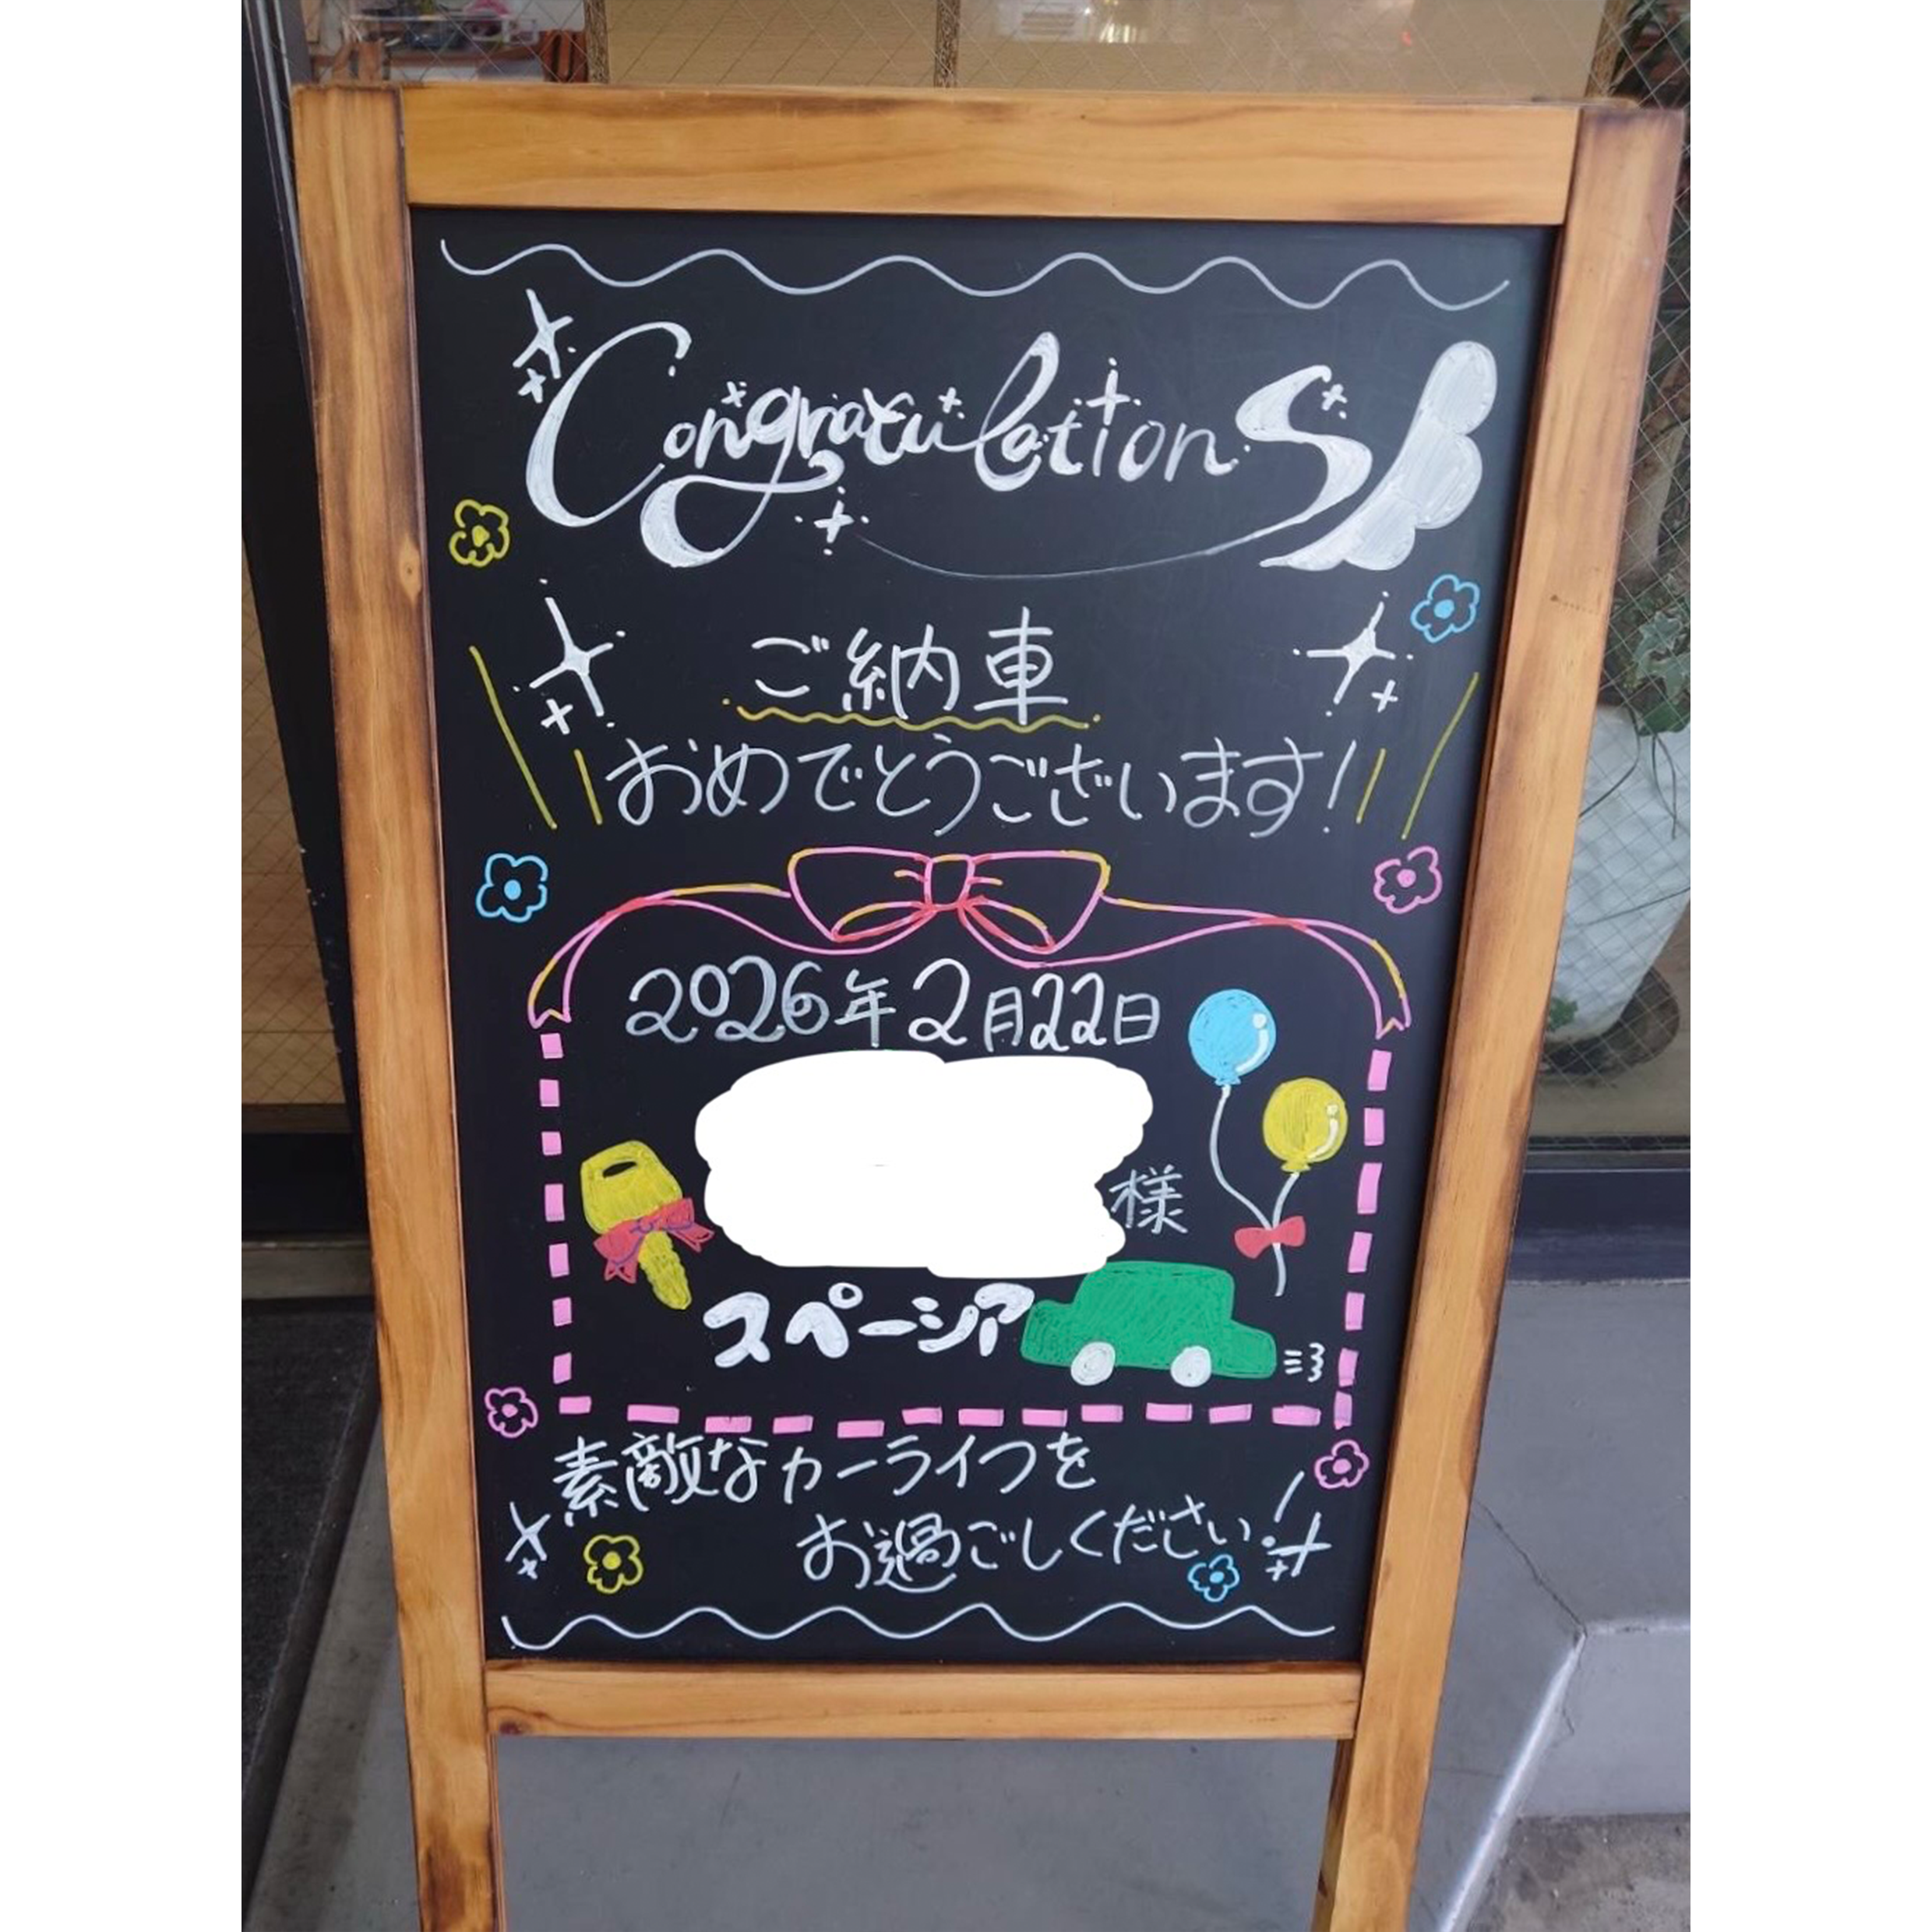 Congratulations
ご納車
おめでとうございます!
2026年2月22日
様
スペーシア
素敵なカーライフを
お過ごしください!